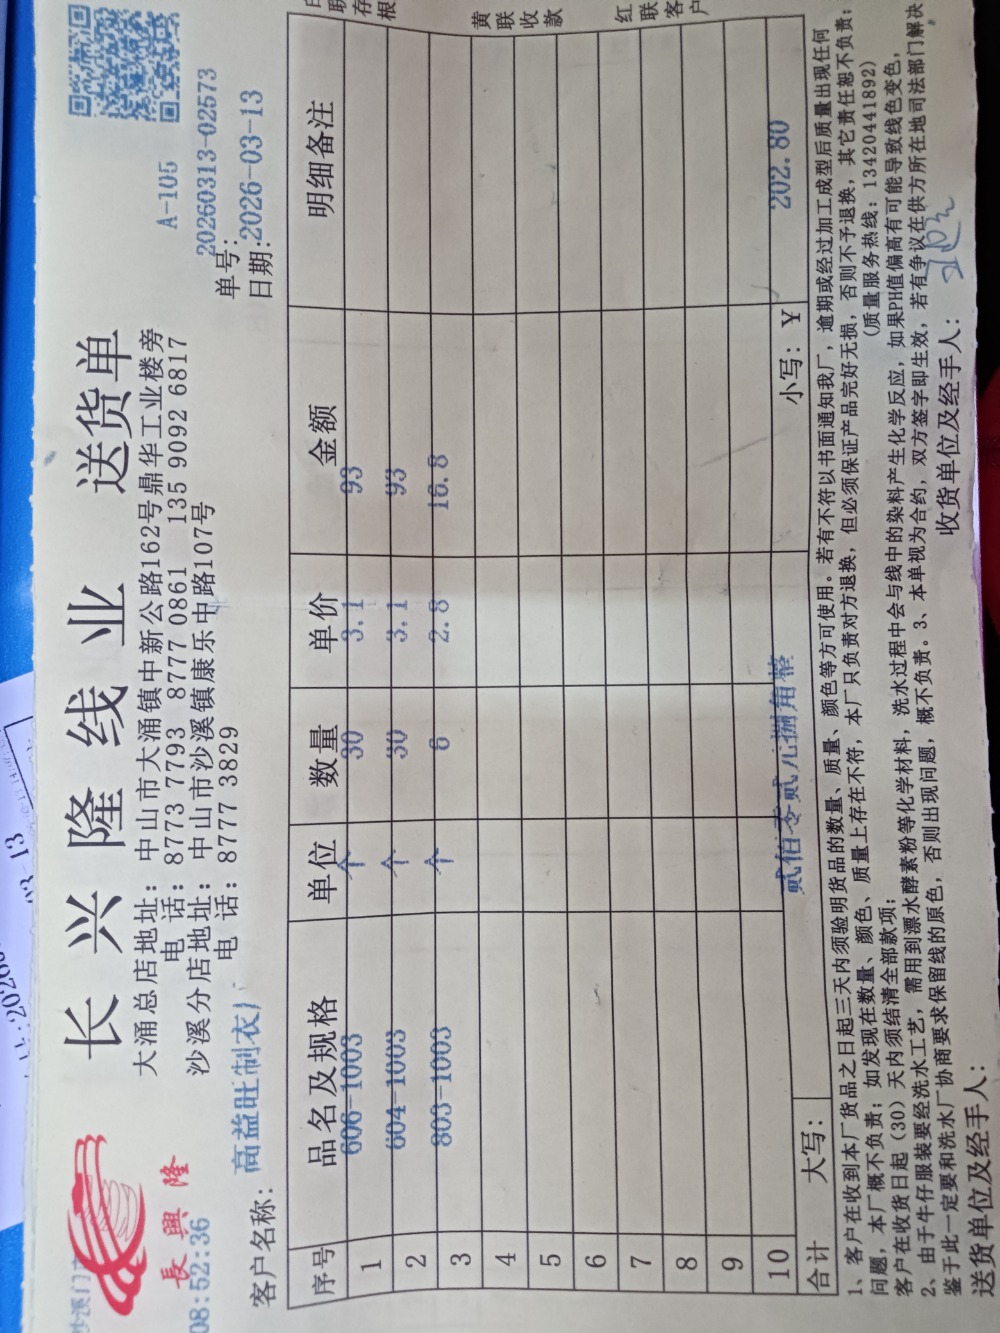 长兴隆线业 送货单
長興隆
A-105
大涌总店地址：中山市大涌镇中新公路162号鼎华工业楼旁
电话：8773 7793 8777 0861 135 9092 6817
沙溪分店地址：中山市沙溪镇康乐中路107号
电话：8777 3829
单号：20260313-02573
日期：2026-03-13
沙溪门市
08:52:36
客户名称：高益旺制衣厂
序号 品名及规格 单位 数量 单价 金额 明细备注
1 606-1003 个 30 3.1 93
2 604-1003 个 30 3.1 93
3 803-1003 个 6 2.8 16.8
4
5
6
7
8
9
10
合计 大写：贰佰零贰元捌角整 小写：￥ 202.80
1、客户在收到本厂货品之日起三天内须验明货品的数量、质量、颜色等方可使用。若有不符以书面通知我厂，逾期或经过加工成型后质量出现任何
问题，本厂概不负责；如发现在数量、颜色、质量上存在不符，本厂只负责对方退换，但必须保证产品完好无损，否则不予退换，其它责任恕不负责；
客户在收货日起（30）天内须结清全部款项； （质量服务热线：13420441892）
2、由于牛仔服装要经洗水工艺，需用到漂水酵素粉等化学材料，洗水过程中会与线中的染料产生化学反应，如果PH值偏高有可能导致线色变色，
鉴于此一定要和洗水厂协商要求保留线的原色，否则出现问题，概不负责。3、本单视为合约，双方签字即生效，若有争议在供方所在地司法部门解决
送货单位及经手人： 收货单位及经手人：
联存根
黄联收款
红联客户